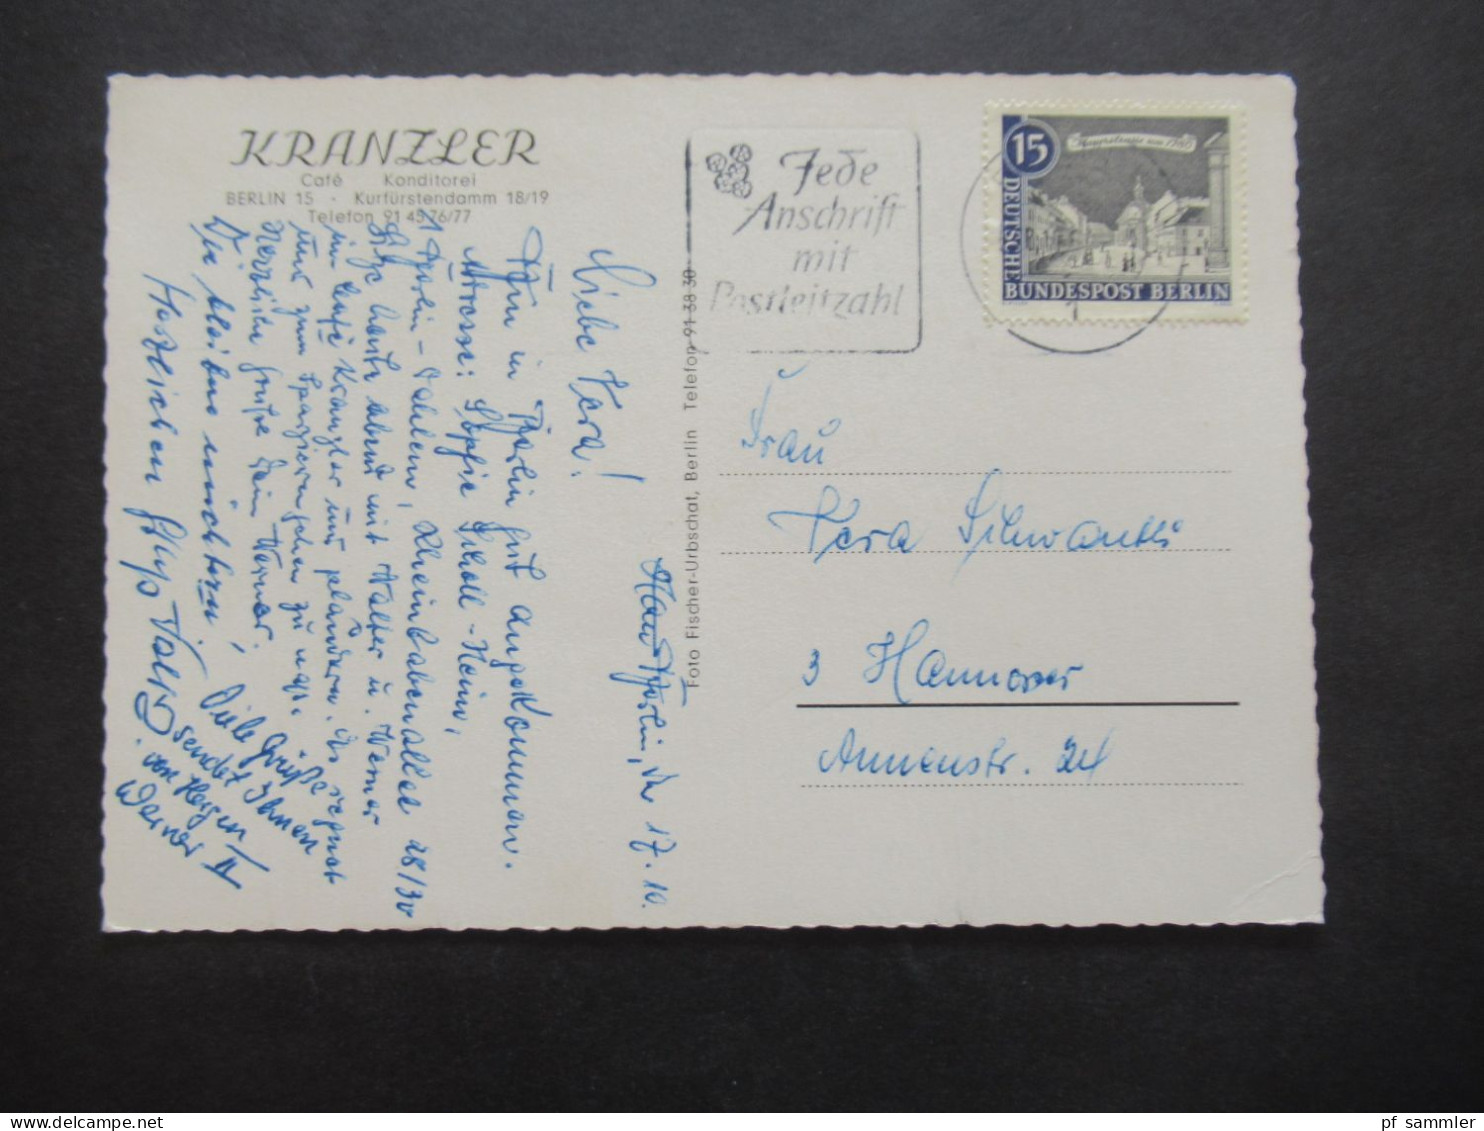 KRANZLER
Café Konditorei
BERLIN 15 - Kurfürstendamm 18/19
Telefon 91 45 76/77
Berlin, den 17. 10.
Liebe Vera!
Nun in Berlin gut angekommen.
Adresse: Sophie Scholl-Heim,
1 Berlin-Dahlem, Rheinbabenallee 28/30
Sitze heute abend mit Walter u. Werner
im Café Kranzler und plaudern. Es regnet
nur zum spazierengehen zu naß.
Herzliche Grüße Dein Werner
Wir bleiben nüchtern,
Herzlichen
Viele Grüße
sendet Ihnen
Werner II
Foto Fischer-Urbschat, Berlin Telefon 91 38 30
Jede
Anschrift
mit
Postleitzahl
15
DEUTSCHE
BUNDESPOST BERLIN
1
Frau
Vera Silwanth
3 Hannover
Annenstr. 24
pf sammler